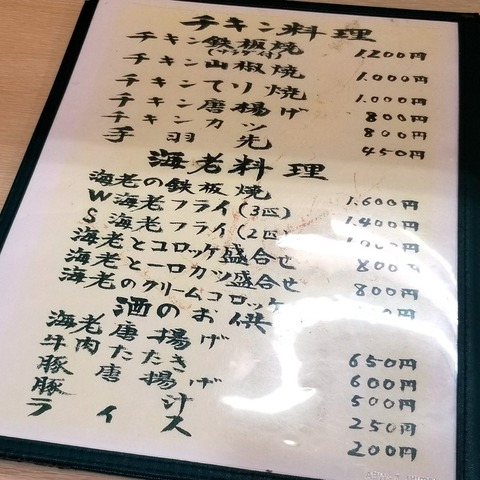 チキン料理
チキン鉄板焼 1.200円
(サラダ付)
チキン山椒焼 1.000円
チキンてり焼 1.000円
チキン唐揚げ 800円
チキンカツ 800円
手羽先 450円
海老料理
海老の鉄板焼 1.600円
W海老フライ(3匹) 1.400円
S海老フライ(2匹)
海老とコロッケ盛合せ 800円
海老と一口カツ盛合せ 800円
海老のクリームコロッケ
酒のお供
海老唐揚げ 650円
牛肉たたき 600円
豚唐揚げ 500円
豚汁 250円
ライス 200円